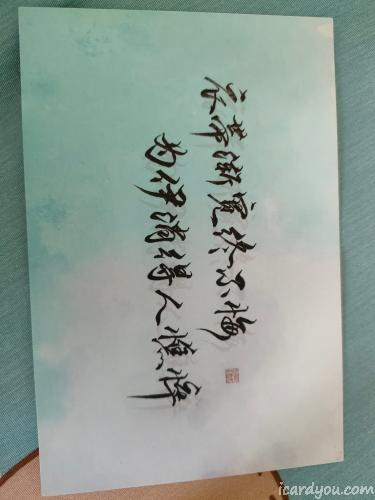 衣带渐宽终不悔
为伊消得人憔悴
icardyou.com